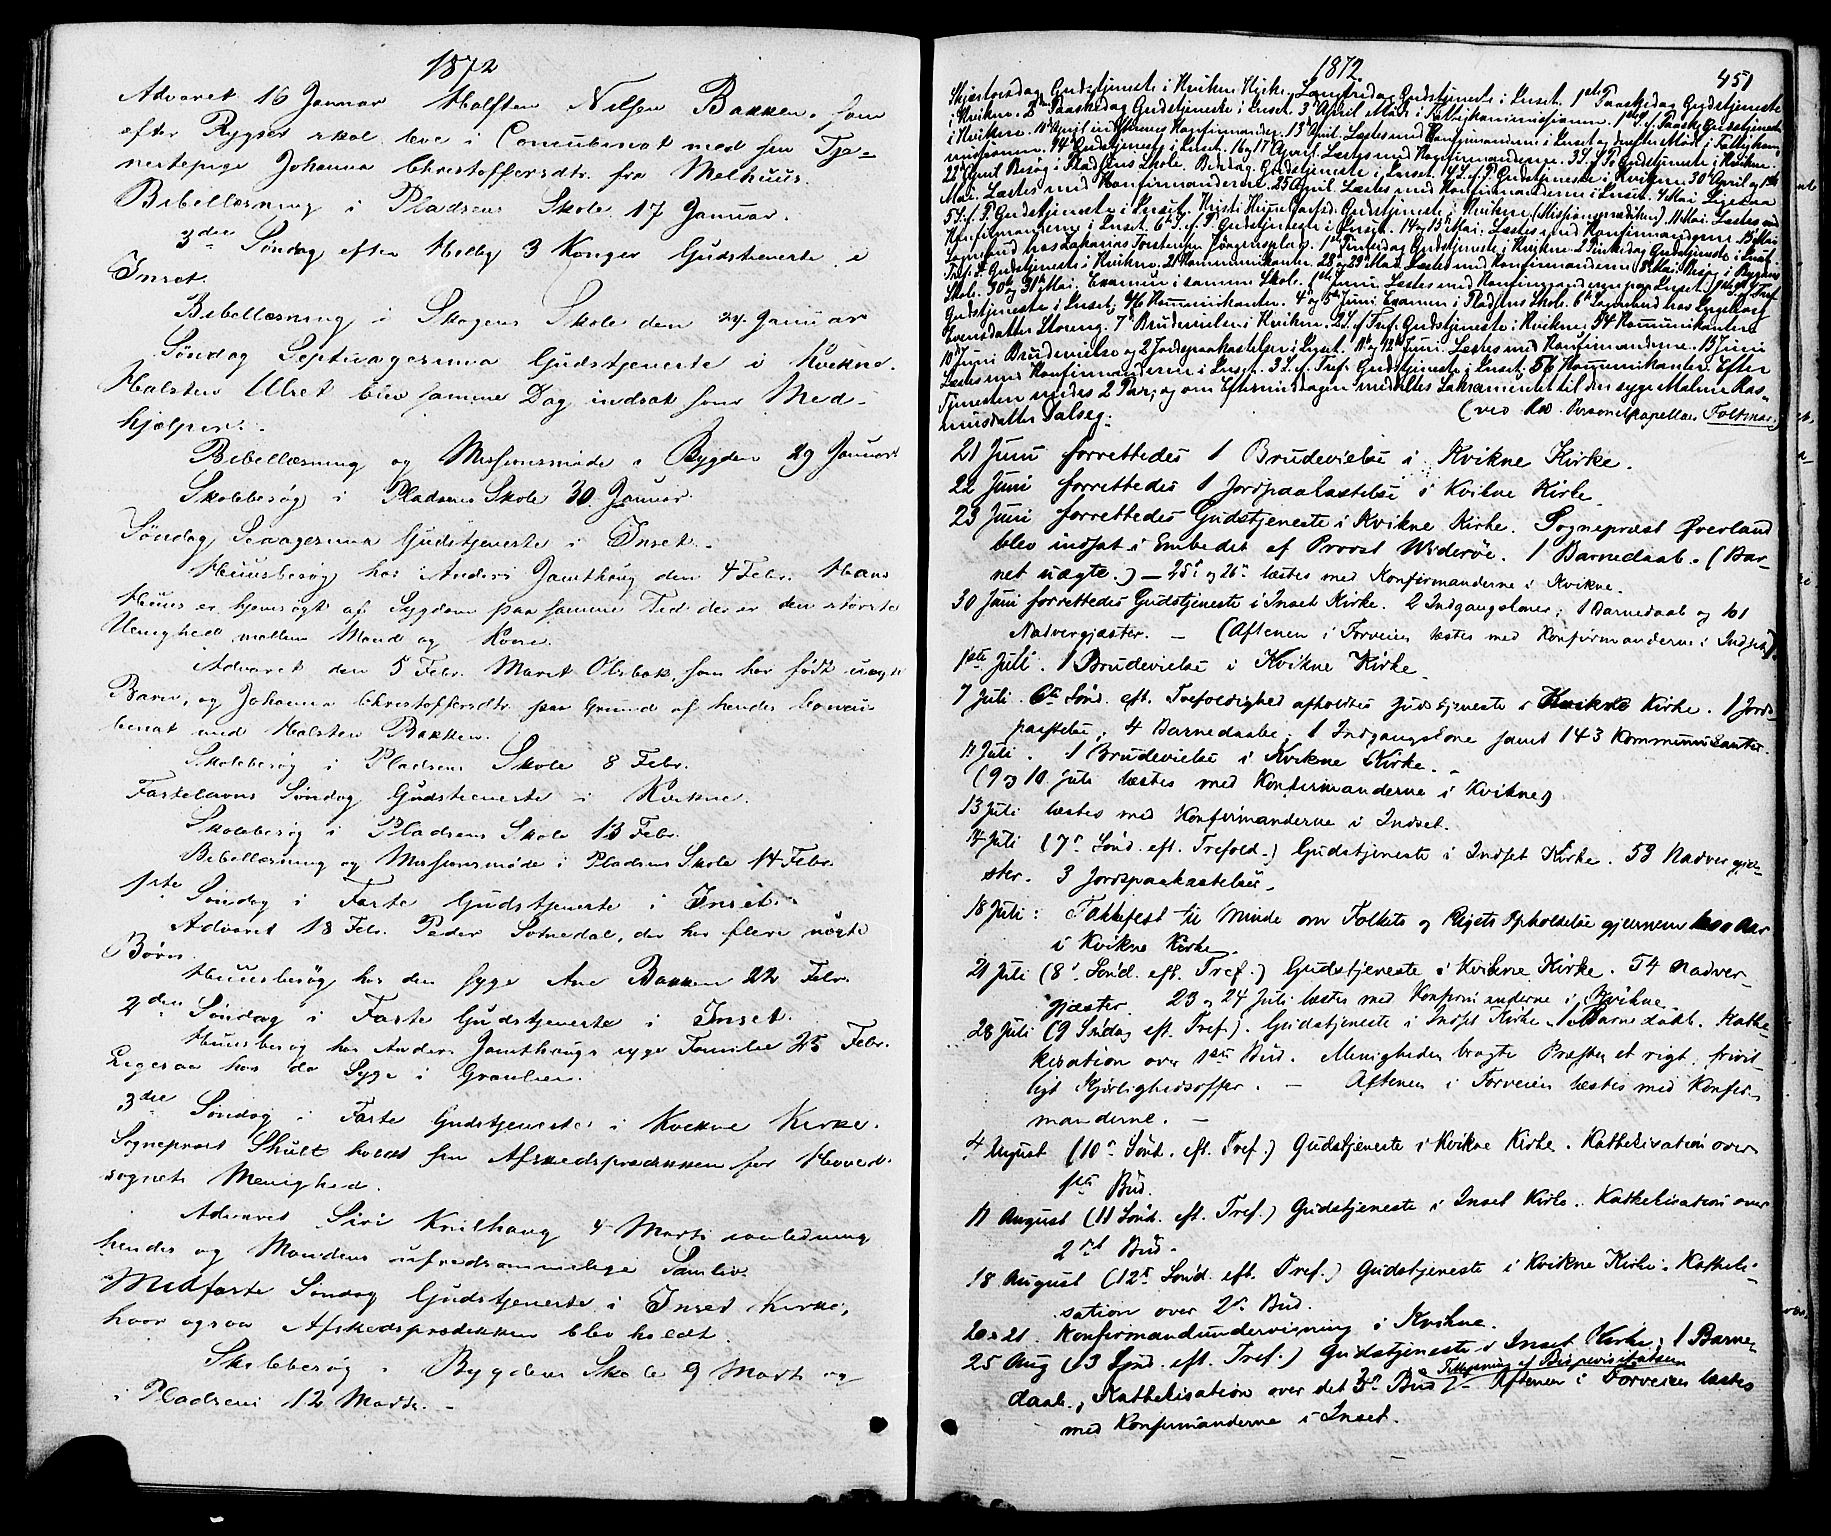 1872
Advaret 16 Januar Halsten Nilsen Bakken, som
efter Rygtet skal leve i Concubinat med sin Tje-
nestepige Johanna Christoffersdtr. fra Melhuus.
Bibellæsning i Pladsens Skole 17 Januar.
3die Søndag efter Hellig 3 Konger Gudstjeneste i
Inset.
Bibellæsning i Skogens Skole den 24. Januar
Søndag Septuagesima Gudstjeneste i Kvikne.
Halsten Ulset blev samme Dag indsat som Med-
hjælper.
Bibellæsning og Missionsmøde i Bygden 29 Januar
Skolebesøg i Pladsens Skole 30. Januar.
Søndag Sexagesima Gudstjeneste i Inset.
Huusbesøg hos Anders Jamthaug den 4 Febr. Hans
Huus er hjemsøgt af Sygdom paa samme Tid der er den største
Uenighed mellem Mand og Kone.
Advaret den 5 Febr. Marit Olsbak, som har født uægte
Barn, og Johanna Christoffersdtr. paa Grund af hendes Concu-
binat med Halsten Bakken.
Skolebesøg i Pladsens Skole 8 Febr.
Fastelavns Søndag Gudstjeneste i Kvikne.
Skolebesøg i Pladsens Skole 13 Febr.
Bibellæsning og Missionsmøde i Pladsens Skole 14 Febr.
1ste Søndag i Faste Gudstjeneste i Inset.
Advaret 18 Febr. Peder Sotnedal, der har flere uægte
Børn.
Huusbesøg hos den syge Ane Bakken 22 Febr.
2den Søndag i Faste Gudstjeneste i Inset.
Huusbesøg hos Anders Jamthaugs syge Familie 25 Febr.
Ligesaa hos de Syge i
3die Søndag i Faste Gudstjeneste i Kvikne Kirke.
Sognepræst Shult holdt sin Afskedsprædikken for Hoved-
sognets Menighed.
Advaret Siri Knilhaug 4 Marts
hendes og Mandens ufredsommelige Samliv.
Midfaste Søndag Gudstjeneste i Inset Kirke,
hvor ogsaa Afskedsprædikken blev holdt.
Skolebesøg i Bygdens Skole 9 Marts og
i Pladsens 12 Marts. -
1872
451
Skjærtorsdag Gudstjeneste i Kvikne Kirke, Langfredag Gudstjeneste i Inset. 1ste Paaskedag Gudstjeneste
i Kvikne. 2den Paaskedag Gudstjeneste i Inset. 3die April Møde i Fattigkommissionen. 1ste S. e. Paaske Gudstjeneste
i Kvikne. Konfirmander. 13de April. Læstes med Konfirmanderne i Inset og Møde i Fattigkom-
missionen. 14de Gudstjeneste i Inset. 16 og 17 April. Læstes med Konfirmanderne. 3 S. e. P. Gudstjeneste i Kvikne.
23 April Besøg i Pladsens Skole. Bededag Gudstjeneste i Inset. 4 S. e. P. Gudstjeneste i Kvikne. 30 April og 1ste
Mai. Læstes med Konfirmanderne. 25 April. Læstes med Konfirmanderne i Inset. 4 Mai Ligesaa
5 S. e. P. Gudstjeneste i Inset. Kristi Himmelfartsd. Gudstjeneste i Kvikne (Missionsprædiken). 11 Mai. Læstes med
Konfirmanderne i Inset. 6 S. e. P. Gudstjeneste i Inset. 14 og 15 Mai. Læstes med Konfirmanderne. 15 Mai
Sognebud hos Zakarias Torstensen 1ste Pintsedag Gudstjeneste i Kvikne. 2 Pintsedag Gudstjeneste i Inset.
Tref. S. Gudstjeneste i Kvikne. 21 Kommunikanter. 28 og 29 Mai. Læstes med Konfirmanderne. Mai Besøg i Bygdens
Skole. 30te og 31te Mai. Examen i samme Skole. 1ste Juni Læstes med Konfirmanderne paa Inset. 1 S. e. Tref.
Gudstjeneste i Inset; Kommunikanter. 4 og 5te Juni Examen i Pladsens Skole. 6te Sognebud hos Ingeborg
Evensdatter Storeng. 7de Brudevielse i Kvikne. 2 S. e. Tref. Gudstjeneste i Kvikne; 54 Kommunikanter
10 Juni Brudevielse og 2 Jordspaakastelser i Inset. 11te og 12te Juni. Læstes med Konfirmanderne. 15 Juni
Læstes med Konfirmanderne i Inset. 3 S. e. Tref. Gudstjeneste i Inset. 56 Kommunikanter. Efter
Tjenesten viedes 2 Par, og om Eftermiddagen meddeltes Sakramentet til den syge Malene Ras-
musdatter Dalseg.
(ved Res. Personelkapellan Foltmar.)
21 Juni forrettedes 1 Brudevielse i Kvikne Kirke.
22 Juni forrettedes 1 Jordpaakastelse i Kvikne Kirke
23 Juni forrettedes Gudstjeneste i Kvikne Kirke. Sognepræst Øverland
blev indsat i Embedet af Provst Widerøe. 1 Barnedaab. (Bar-
net uægte.) - 25de og 26de læstes med Konfirmanderne i Kvikne.
30 Juni forrettedes Gudstjeneste i Inset Kirke. 2 Indgangskoner; 1 Barnedaab og 101
Nadvergjæster. - (Aftenen i Forveien læstes med Konfirmanderne i Indset).
1ste Juli. 1 Brudevielse i Kvikne Kirke.
7 Juli 6te Sønd. eft. Trefoldighed afholdtes Gudstjeneste i Kvikne Kirke. 1 Jords-
paaftelse, 4 Barnedaabe, 1 Indgangskone samt 143 Kommunikanter.
11 Juli. 1 Brudevielse i Kvikne Kirke. -
(9 og 10 Juli læstes med Konfirmanderne i Kvikne)
13 Juli læstes med Konfirmanderne i Indset.
14 Juli (7de Sønd. eft. Trefold.) Gudstjeneste i Indset Kirke. 53 Nadvergjæ-
ster. 3 Jordspaakastelser.
18 Juli: Takkefest til Minde om Folkets og Rigets Opholdelse gjennem 1000 Aar
i Kvikne Kirke.
21 Juli (8de Sønd. eft. Tref.) Gudstjeneste i Kvikne Kirke. 54 Nadver-
gjæster. 23 og 24 Juli læstes med Konfirmanderne i Kvikne.
28 Juli (9 Søndag eft. Tref.). Gudstjeneste i Indset Kirke. 1 Barnedaab. Kathe-
kisation over 1ste Bud. Menigheden bragte Præsten et rigt, frivil-
ligt Kjærlighedsoffer. - Aftenen i Forveien læstes med Konfir-
manderne. -
4 August (10de Sønd. eft. Tref.) Gudstjeneste i Kvikne Kirke. Kathekisation over
1ste Bud.
11 August (11 Sønd. eft. Tref.) Gudstjeneste i Inset Kirke. Kathekisation over
2det Bud.
18 August (12te Sønd. eft. Tref.) Gudstjeneste i Kvikne Kirke. Katheki-
sation over 2det Bud.
20 & 21. Konfirmandundervisning i Kvikne.
25 Aug (13 Sønd. eft. Tref.) Gudstjeneste i Inset Kirke; 1 Barne-
daab, Kathekisation over det 3de Bud & Tillysning af Bispevisitatsen - Aftenen i Forveien læstes
med Konfirmanderne i Inset.